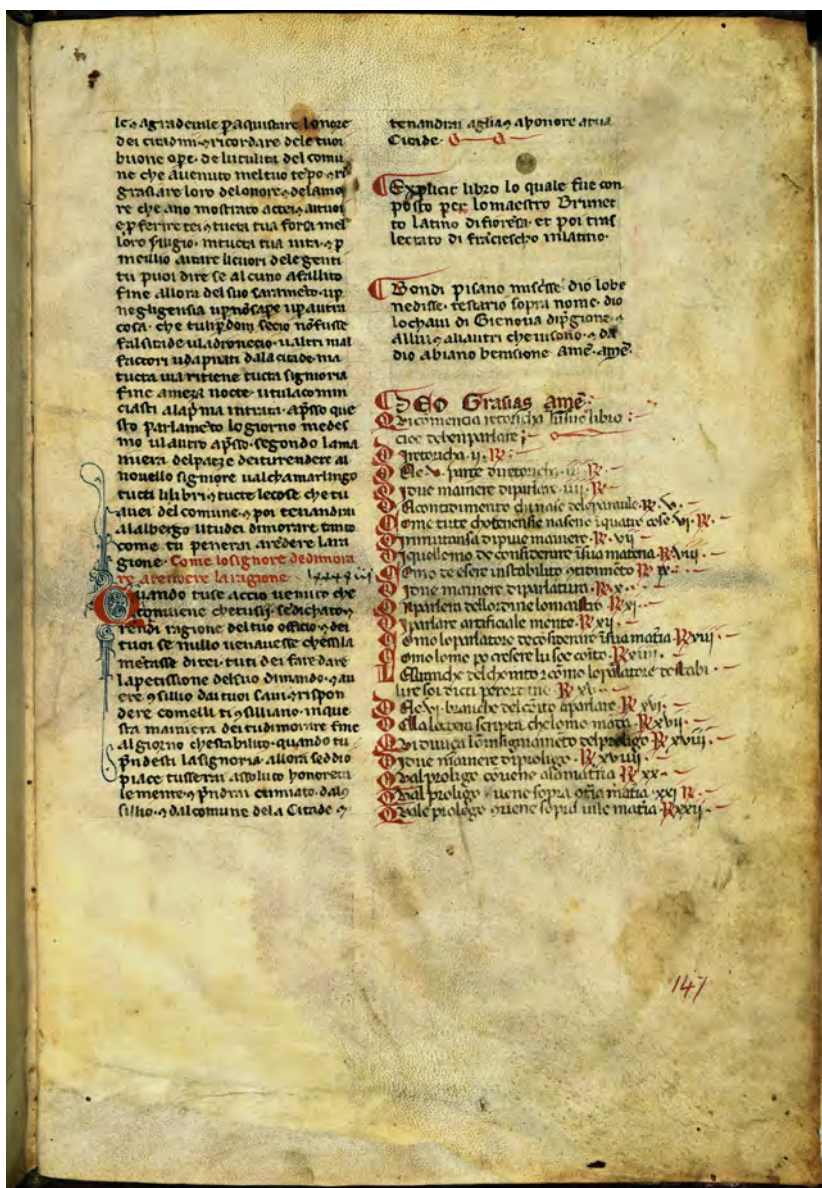 le ⁊ agradeuile p aquistare lonore
dei citadini ⁊ ricordare dele tuoi
buone ope. de lutulita del comu
ne che auenuto mel tuo tẽpo ⁊ ri
grasiare loro del onore ⁊ delamo
re che ano mostrato actei ⁊ aituoi
e p ferire tei ⁊ tucta tua forsa mel
loro seruigio. intucta tua uita. ⁊ p
mellio aitare li cuori dele genti
tu puoi dire se alcuno a fallito
fine allora del suo sarameto. u p
negligensia u p nõ sape u p autra
cosa. che tu li pdoni secio nõ fusse
falsitade u ladroneccio. u altri mal
factori u dapnati dala citade. ma
tucta uia ritiene tucta signoria
fine a meza nocte. u tu la comin
ciasti ala pma intrata. apsso que
sto parlameto lo giorno medes
mo u lautro apsso. segondo lama
niera del paeze dei tu rendere al
nouello signiore u al chamarlingo
tucti li libri ⁊ tucte le cose che tu
auei del comune. ⁊ poi te nandrai
al albergo u tu dei dimorare tanto
come tu penerai a rẽdere la ra
gione. Come lo signore de dimora
re a rendere la ragione
Quando tu se accio uenuto che
conuiene che tu sij sedichato ⁊
rendi ragione del tuo officio ⁊ dei
tuoi se nullo ue nauesse che si la
metasse di tei. tu ti dei fare dare
la petissione del suo dimando. ⁊ au
ere ꝯsillio dai tuoi saui ⁊ rispon
dere come lli ti ꝯsilliano. in que
sta maniera dei tu dimorare fine
al giorno che stabilito. quando tu
pndesti la signoria. allora se dio
piace tu sserai assoluto honoreui
le mente. ⁊ pndrai cumiato. dal ꝯ
sillio. ⁊ dal comune dela Citade ⁊
te nandrai a gli a ⁊ a honore a tua
Citade.
Explicit libro lo quale fue con
posto per lo maestro Brunet
to latino di fiorẽsa. et poi tras
lectato di frãciescho in latino.
Bondi pisano mi scisse dio lo be
nedisse. testario sopra nome. dio
lo chaui di Gienoua di pgione. ⁊
a llui ⁊ al i autri che ui sono. ⁊ da
dio abiano benisione amẽ. amẽ.
DEO Grasias amẽ:
Qui comencia retoricha in suo libro
cioe de ben parlare
D i retoricha. ii. R.
De .v. parte di retoricha. R.
D i due mainere di parlare. iiii. R.
Come tute chotensie nasene i quatro cose vi. R.
In nuitansa di piue maniere. R. vii
Di quello mo de considerare i sua materia R viii.
Como de esere instabilito R ix.
D i due mainere di parlatura. R. x.
Di parlare artificiale mente. R. xii.
Como lo parlatore de cosiderare i sua matia R xiii.
lire soi dicti per ordine. R. xv.
De vi. branche del cõito a parlare. R. xvi.
De lla lectera scripta che lomo mata. R xvii.
Qui diuisa lo insigniameto del proligo R xviii.
D i due mainere di proligo. R. xviiii.
Qual proligo cõuene ala matria R xx.
Qual proligo ꝯuene sopra matia. xxi R.
Quale prolego ꝯuene sopra uile matia. R xxii.
147